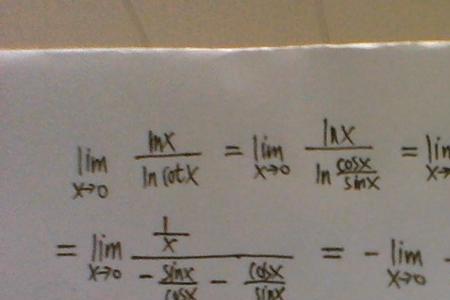 lim x→0 lnx / ln cotx = lim x→0 lnx / ln cosx/sinx = lim x→
= lim x→0 1/x / - sinx/cosx - cosx/sinx = - lim x→0 -